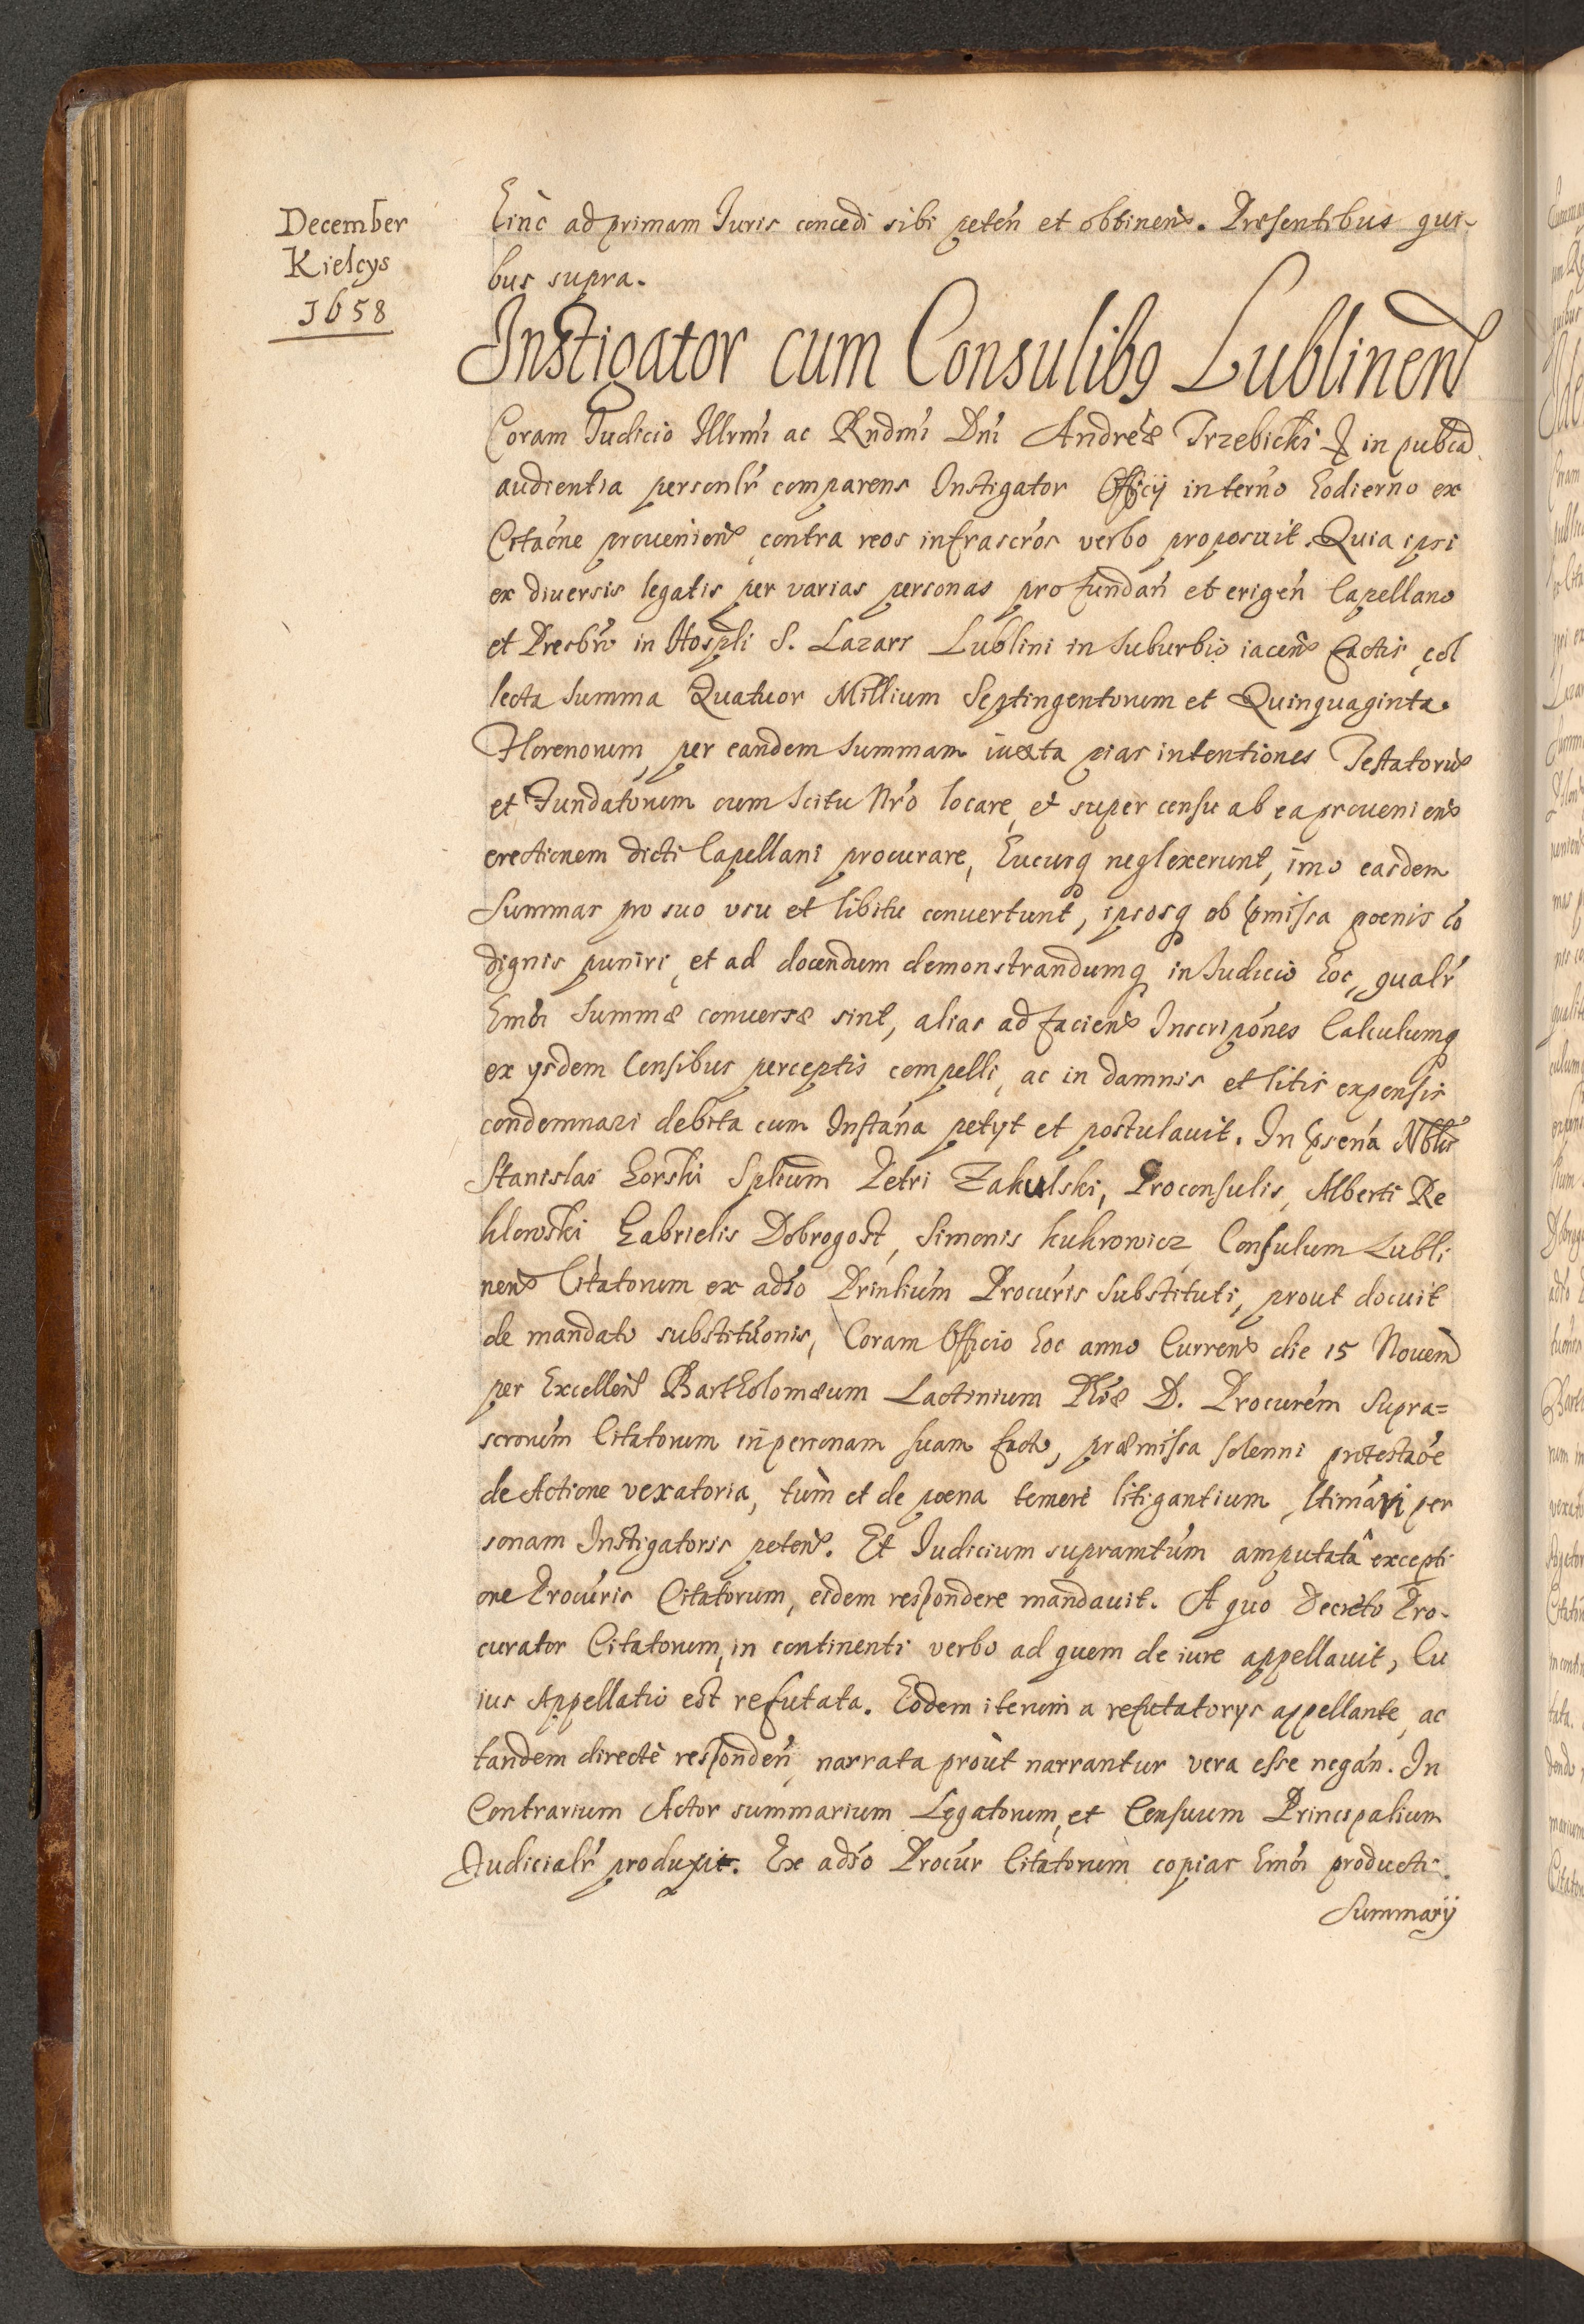 December
Kielcys
1658
hinc ad primam Iuris concedi sibi peten̄ et obtinen̄. Præsentibus qui-
bus supra.
Instigator cum Consulibꝯ Lublinen̄
Coram Iudicio Illrmi ac Rndmi Dni Andreæ Trzebicki in publca
audientia personlr comparens Instigator Officij in termo hodierno ex
Citaone prouenien̄ contra reos infrascros verbo proposuit. Quia ipsi
ex diuersis legatis per varias personas pro fundan̄ et erigen̄ Capellano
et Presbro in Hospli S. Lazari Lublini in suburbio iacen̄ factis, col
lecta summa Quatuor Millium Septingentorum et Quinquaginta
Florenorum, per eandem summam iuxta pias intentiones Testatorū
et Fundatorum cum scitu Nro locare, et super censu ab ea prouenien̄
erectionem dicti Capellani procurare, hucusq neglexerunt, imo easdem
summas pro suo usu et libitu conuertunt, ipsosq ob pmissa poenis co
dignis puniri, et ad docendum demonstrandumq in Iudicio hoc, qualr
hmoi summæ conuersæ sint, alias ad facien̄ Inscripones Calculumq
ex ysdem Censibus perceptis compelli, ac in damnis et litis expensis
condemnari debita cum Instana petyt et postulauit. In psena Nblis
Stanislai Gorski Splium Petri Zakulski, Proconsulis, Alberti Re
klowski, Gabrielis Dobrogost, Simonis Kukrowicz Consulum Lubli
nen̄ Citatorum ex adso Prinlium Procuris substituti, prout docuit
de mandato substituonis, Coram Officio hoc anno Curren̄ die 15 Nouem̄
per Excellen̄ Bartholomæum Lactinium Phiæ D. Procurem Supra=
scrorum Citatorum in personam suam facto, præmissa solenni protestaoe
de Actione vexatoria, tum et de poena temere litigantium, ltimari per
sonam Instigatoris peten̄. Et Iudicium supramtum amputatâ excepti
one Procuris Citatorum, eidem respondere mandauit. A quo Decreto Pro-
curator Citatorum, in continenti verbo ad quem de iure appellauit, Cu
ius Appellatio est refutata. Eodem iterum a refutatorys appellante, ac
tandem directè responden̄, narrata proùt narrantur vera esse negan̄. In
Contrarium Actor summarium Legatorum, et Censuum Principalium
Iudicialr produxit. Ex adso Procur Citatorum copias hmoi producti
Summarij